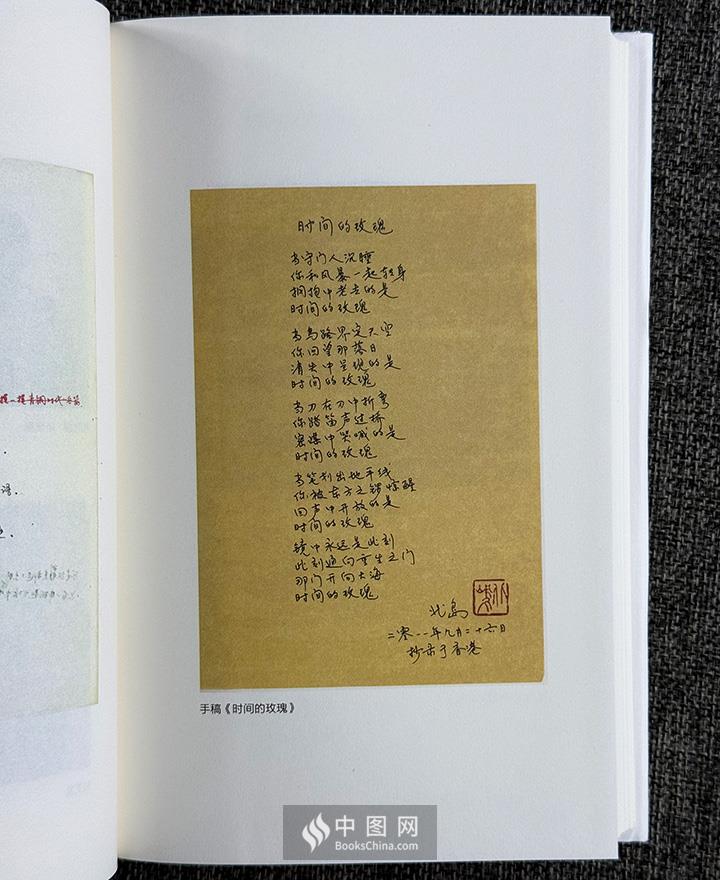 时间的玫瑰
当守门人沉睡
你和风暴一起转身
拥抱中老去的是
时间的玫瑰
当鸟路界定天空
你回望那落日
消失中呈现的是
时间的玫瑰
当刀在水中折弯
你踏笛声过桥
密谋中哭喊的是
时间的玫瑰
当笔划出地平线
你被东方之锣惊醒
回声中开放的是
时间的玫瑰
镜中永远是此刻
此刻通向重生之门
那门开向大海
时间的玫瑰
北岛
二零一一年九月二十六日
抄录于香港
手稿《时间的玫瑰》
中图网
BooksChina.com